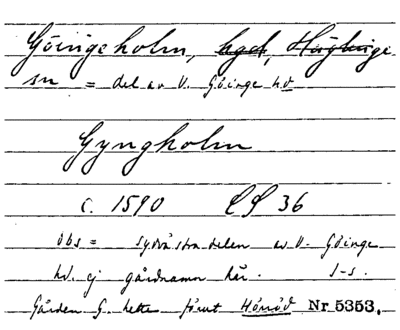 Göingeholm, hgd, Häglinge
sn = del av V. Göinge hd
Gyngholm
c. 1590 LS 36
obs = sydvästra delen av V. Göinge
hd. ej gårdnamn här. I-s.
Gården G. hette förut Hörröd Nr 5353.